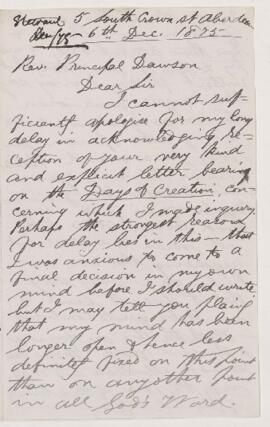 5 South Crown st Aberdeen
Dec/75 - 6th Dec. 1875 -
Rev. Principal Dawson
Dear Sir
I cannot suf-
ficiently apologise for my long
delay in acknowledging re-
ception of your very kind
and explicit letter bearing
on the Days of Creation, con-
cerning which I made inquiry.
Perhaps the strongest reason
for delay lies in this - that
I was anxious to come to a
final decision in my own
mind before I should write
but I may tell you plainly
that my mind has been
longer open & hence less
definitely fixed on this point
than on any other point
in all God's Word.